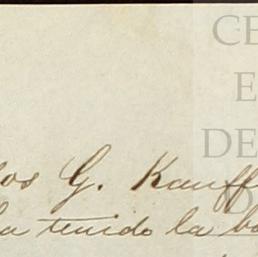 CE
E
DE
D
los G. Kauff
ha tenido la bo